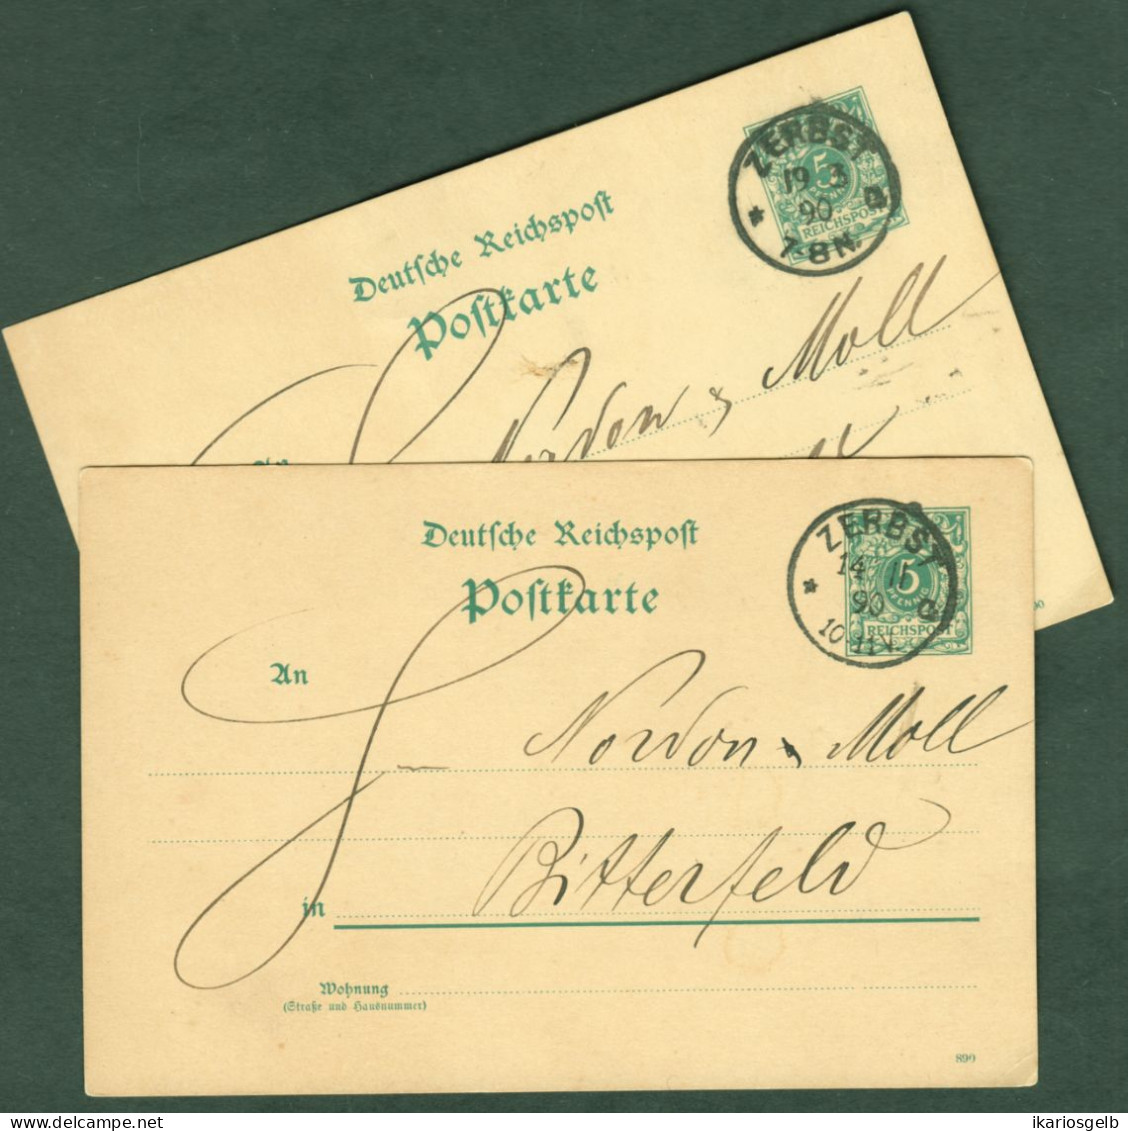 ZERBST
19 3
90
7-8 N.
5
REICHSPOST
Deutsche Reichspost
Postkarte
An
Nordon & Moll
ZERBST
14 11
90
10-11 V.
5
PFENNIG
REICHSPOST
Deutsche Reichspost
Postkarte
An
Nordon & Moll
in Bitterfeld
Wohnung
(Straße und Hausnummer)
890
ikariosgelb